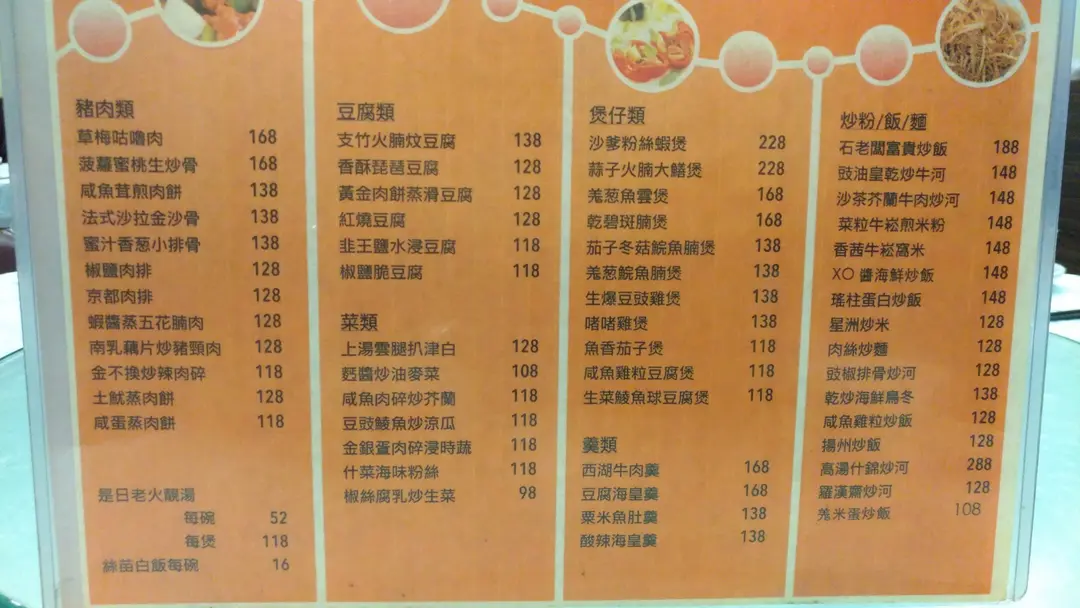 豬肉類
草梅咕嚕肉 168
菠蘿蜜桃生炒骨 168
咸魚茸煎肉餅 138
法式沙拉金沙骨 138
蜜汁香葱小排骨 138
椒鹽肉排 128
京都肉排 128
蝦醬蒸五花腩肉 128
南乳藕片炒豬頸肉 128
金不換炒辣肉碎 118
土魷蒸肉餅 128
咸蛋蒸肉餅 118
是日老火靚湯
每碗 52
每煲 118
絲苗白飯每碗 16
豆腐類
支竹火腩炆豆腐 138
香酥琵琶豆腐 128
黃金肉餅蒸滑豆腐 128
紅燒豆腐 128
韭王鹽水浸豆腐 118
椒鹽脆豆腐 118
菜類
上湯雲腿扒津白 128
麫醬炒油麥菜 108
咸魚肉碎炒芥蘭 118
豆豉鯪魚炒涼瓜 118
金銀蛋肉碎浸時蔬 118
什菜海味粉絲 118
椒絲腐乳炒生菜 98
煲仔類
沙爹粉絲蝦煲 228
蒜子火腩大鱔煲 228
羗葱魚雲煲 168
乾碧斑腩煲 168
茄子冬菇鯇魚腩煲 138
羗葱鯇魚腩煲 138
生爆豆豉雞煲 138
啫啫雞煲 138
魚香茄子煲 118
咸魚雞粒豆腐煲 118
生菜鯪魚球豆腐煲 118
羹類
西湖牛肉羹 168
豆腐海皇羹 168
粟米魚肚羹 138
酸辣海皇羹 138
炒粉/飯/麵
石老闆富貴炒飯 188
豉油皇乾炒牛河 148
沙茶芥蘭牛肉炒河 148
菜粒牛崧煎米粉 148
香茜牛崧窩米 148
XO 醬海鮮炒飯 148
瑤柱蛋白炒飯 148
星洲炒米 128
肉絲炒麵 128
豉椒排骨炒河 128
乾炒海鮮烏冬 138
咸魚雞粒炒飯 128
揚州炒飯 128
高湯什錦炒河 288
羅漢齋炒河 128
羗米蛋炒飯 108